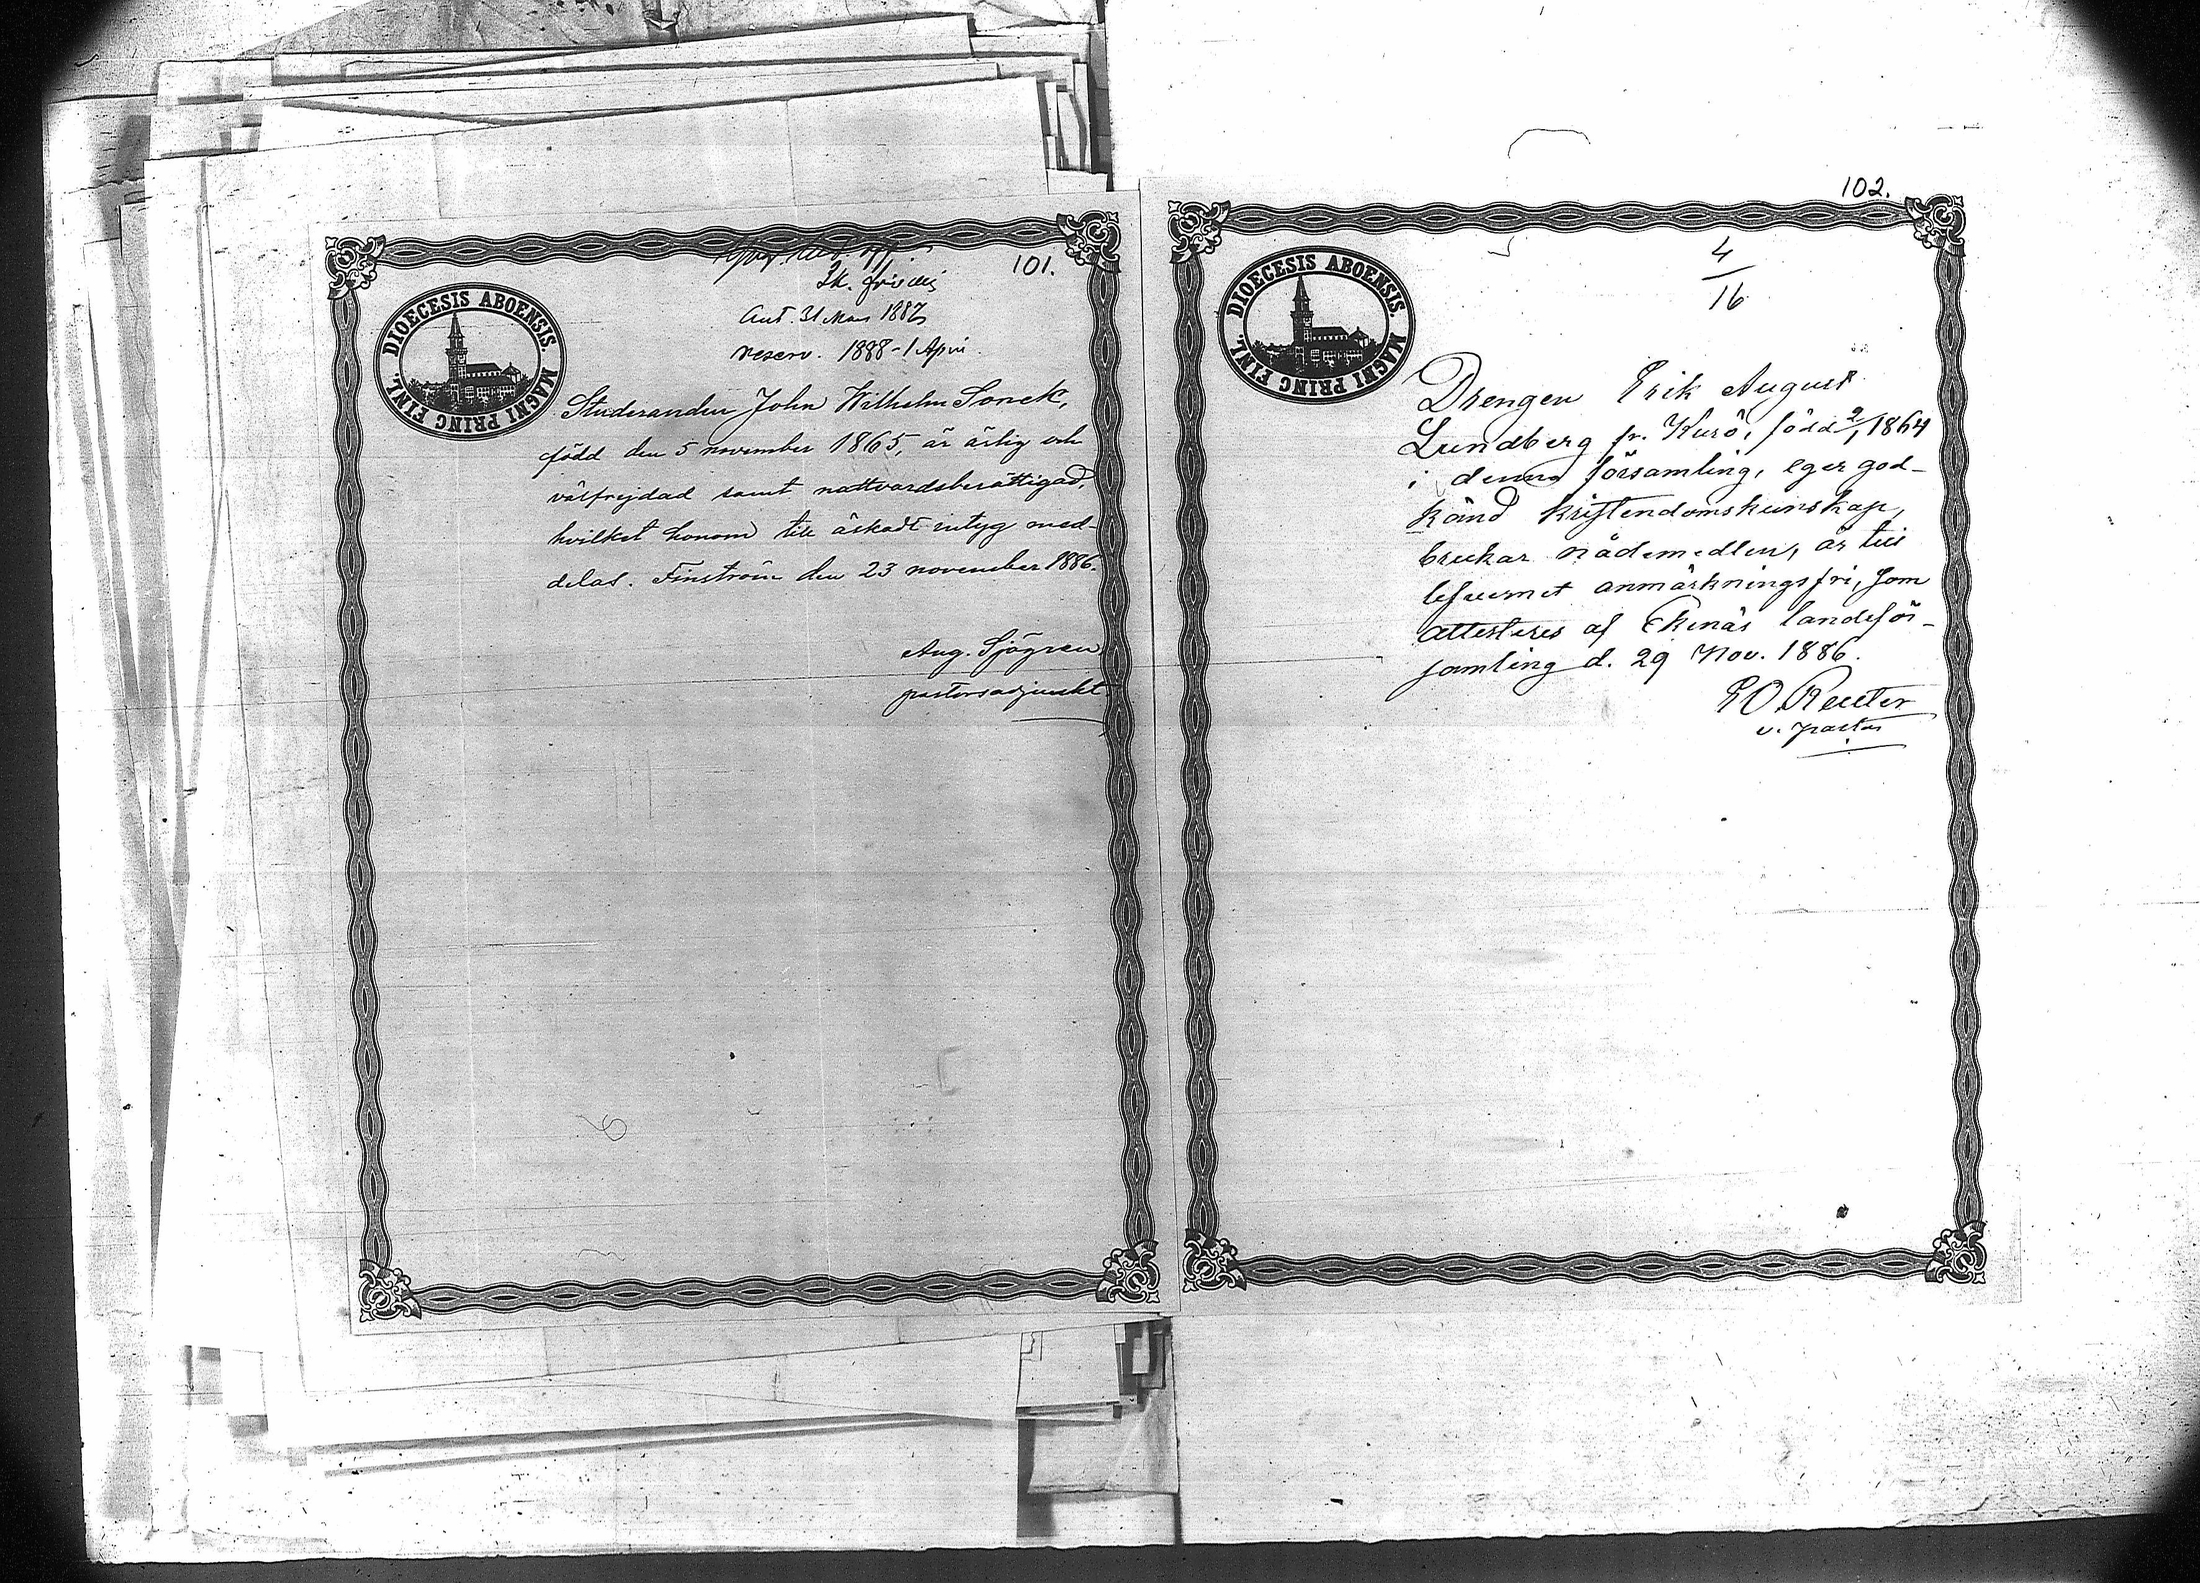 101.
Ant. 31 Mars 1887
reserv. 1888 - 1 April
DIOECESIS ABOENSIS. MAGNI PRINC FINL.
Studeranden John Wilhelm Sonck,
född den 5 november 1865, är ärlig och
välfrejdad samt nattvardsberättigad,
hvilket honom till äskadt intyg med-
delas. Finström den 23 november 1886.
Aug. Sjögren
pastorsadjunkt
102.
4
16
DIOECESIS ABOENSIS. MAGNI PRINC FINL.
Drengen Erik August
Lundberg fr. Kurö, född 2/1 1864
i denna församling, eger god-
känd kristendomskunskap,
brukar nådemedlen, är till
lefvernet anmärkningsfri, som
attesteres af Ekenäs landsför-
samling d. 29 Nov. 1886.
E O Reuter
v. pastor